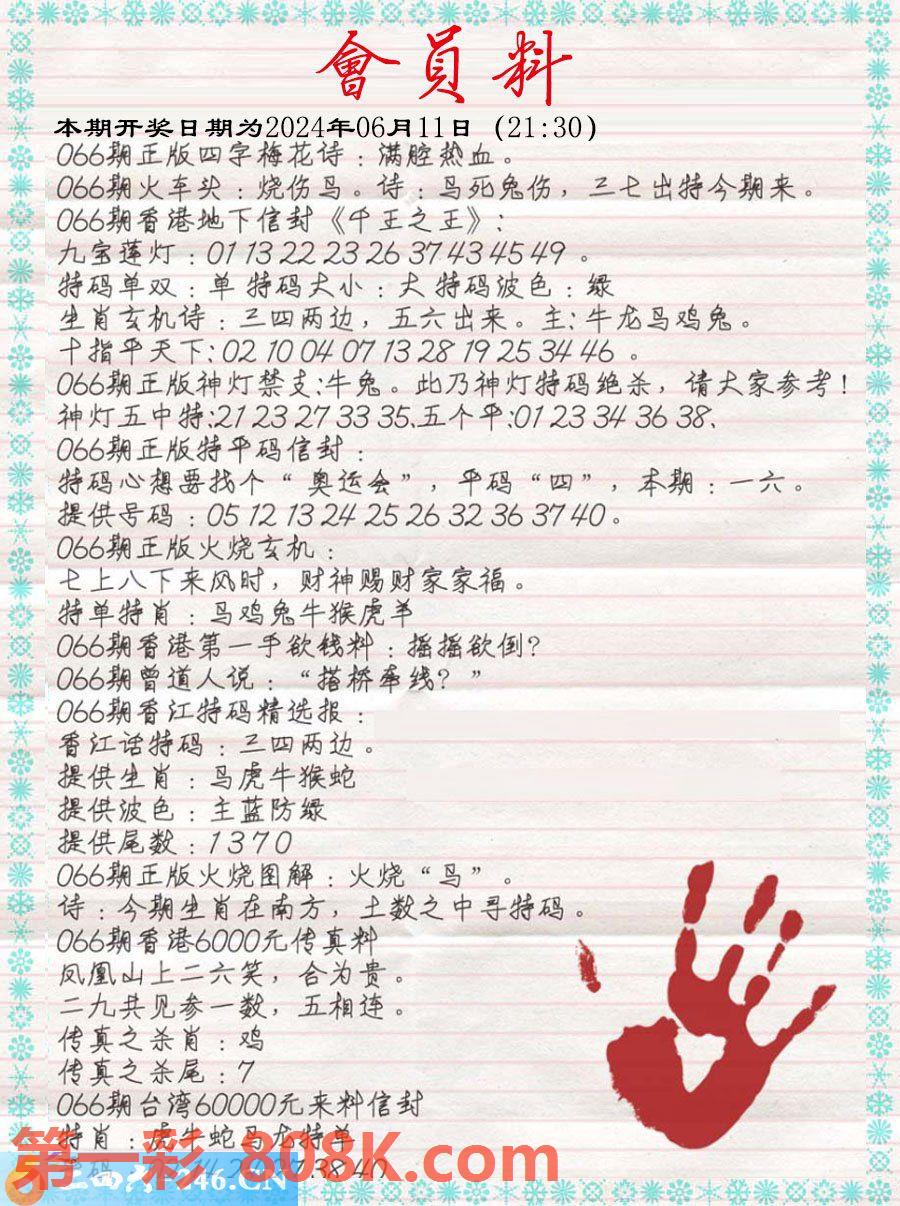 會員料
本期开奖日期为2024年06月11日 (21:30)
066期正版四字梅花诗：满腔热血。
066期火车头：烧伤鸟。诗：鸟死兔伤，三七出特今期来。
066期香港地下信封《千王之王》：
九宝莲灯：01 13 22 23 26 37 43 45 49 。
特码单双：单 特码大小：大 特码波色：绿
生肖玄机诗：三四两边，五六出来。主：牛龙鸟鸡兔。
十指平天下:02 10 04 07 13 28 19 25 34 46 。
066期正版神灯禁支:牛兔。此乃神灯特码绝杀，请大家参考！
神灯五中特:21 23 27 33 35、五个平:01 23 34 36 38、
066期正版特平码信封：
特码心想要找个“奥运会”，平码“四”，本期：一六。
提供号码：05 12 13 24 25 26 32 36 37 40。
066期正版火烧玄机：
七上八下来风时，财神赐财家家福。
特单特肖：马鸡兔牛猴虎羊
066期香港第一手欲钱料：摇摇欲倒？
066期曾道人说：“搭桥牵线？”
066期香江特码精选报：
香江话特码：三四两边。
提供生肖：马虎牛猴蛇
提供波色：主蓝防绿
提供尾数：1 3 7 0
066期正版火烧图解：火烧“鸟”。
诗：今期生肖在南方，土数之中寻特码。
066期香港6000元传真料
凤凰山上二六笑，合为贵。
二九共见参一数，五相连。
传真之杀肖：鸡
传真之杀尾：7
066期台湾60000元来料信封
特肖：虎牛蛇马龙特单
第一彩 808K.com
38 40
246.CN